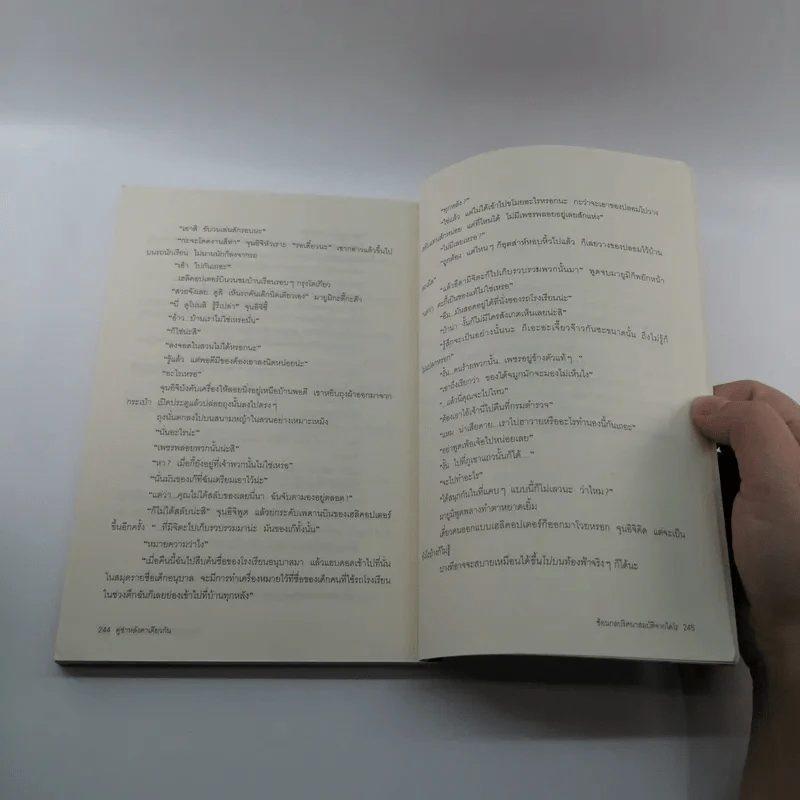 "เอาสิ ชักวนเล่นสักรอบนะ"
จุนอิจิหัวเราะ "รอเดี๋ยวนะ" เขากล่าวแล้วขึ้นไป
บนรถนักเรียน ไม่นานนักก็ลงจากรถ
"เอ้า ไปกันเถอะ"
...เฮลิคอปเตอร์บินวนชมบ้านเรือนรอบๆ กรุงโตเกียว
"สวยจังเลย ดูสิ เห็นรถคันเล็กนิดเดียวเอง"
"นี่ ดูโน่นสิ รู้รึเปล่า" จุนอิจิชี้
"อ้าว บ้านเราไม่ใช่เหรอนั่น"
"ก็ใช่น่ะสิ"
"ลงจอดในสวนไม่ได้หรอกนะ"
"รู้แล้ว แต่พอดีมีของต้องเอาลงนิดหน่อยน่ะ"
"อะไรเหรอ"
จุนอิจิบังคับเครื่องให้ลอยนิ่งอยู่เหนือบ้านพอดี เขาหยิบถุงผ้าออกมาจาก
กระเป๋า เปิดประตูแล้วปล่อยถุงนั้นลงไปตรงๆ
ถุงนั้นตกลงไปบนสนามหญ้าในสวนอย่างเหมาะเหม็ง
"นั่นอะไรน่ะ"
"เพชรพลอยพวกนั้นน่ะสิ"
"หา? เมื่อกี้ยังอยู่ที่เจ้าพวกนั้นไม่ใช่เหรอ"
"นั่นมันของเก๊ที่ฉันเตรียมเอาไว้น่ะ"
"แต่ว่า...คุณไม่ได้สลับของเลยนี่นา ฉันจับตามองอยู่ตลอด!"
"ก็ไม่ได้สลับน่ะสิ" จุนอิจิพูด แล้วยกระดับเพดานบินของเฮลิคอปเตอร์
ขึ้นอีกครั้ง "ที่มิจิตะไปเก็บรวบรวมมาน่ะ มันของเก๊ทั้งนั้น"
"หมายความว่าไง"
"เมื่อคืนนี้ฉันไปสืบค้นชื่อของโรงเรียนอนุบาลมา แล้วแอบดอดเข้าไปที่นั่น
ในสมุดรายชื่อเด็กอนุบาล จะมีการทำเครื่องหมายไว้ที่ชื่อของเด็กคนที่ใช้รถโรงเรียน
ในช่วงดึกฉันก็เลยย่องเข้าไปที่บ้านทุกหลัง"
244 คู่ซ่าหลังคาเดียวกัน
"ทุกหลัง?"
"ใช่แล้ว แต่ไม่ได้เข้าไปขโมยอะไรหรอกนะ กะว่าจะเอาของปลอมไปวาง
แต่ที่ไหนได้ ไม่มีเพชรพลอยอยู่เลยสักแห่ง"
"ไม่มีเลยเหรอ?"
"ถูกต้อง แต่ไหนๆ ก็อุตส่าห์หอบหิ้วไปแล้ว ก็เลยวางของปลอมไว้บ้าน
"แล้วอีตามิจิตะก็ไปเก็บรวบรวมพวกนั้นมา" พูดจบมายูมิก็พยักหน้า
ตะกี้เป็นของแท้ไม่ใช่เหรอ"
"อืม...มันสอดอยู่ใต้ที่นั่งของรถโรงเรียนน่ะ"
"บ้าน่า งั้นก็ไม่มีใครสังเกตเห็นเลยน่ะสิ"
"รู้สึกจะเป็นอย่างนั้นนะ ก็เอะอะเจี๊ยวจ๊าวกันซะขนาดนั้น ถึงไม่รู้ก็
ไม่แปลกหรอก"
"งั้น...คนร้ายพวกนั้น...เพชรอยู่ข้างตัวแท้ๆ..."
"เขาถึงเรียกว่า ของใต้จมูกมักจะมองไม่เห็นไง"
"...แล้วนี่คุณจะไปไหน"
"ต้องเอาไอ้เจ้านี่ไปคืนที่กรมตำรวจ"
"แหม น่าเสียดาย...เราไปฮาวายหรืออะไรทำนองนี้กันเถอะ"
"อย่าพูดเพ้อเจ้อไปหน่อยเลย"
"งั้น ไปที่ภูเขาแถวนั้นก็ได้..."
"จะไปทำอะไร"
"ได้สนุกกันในที่แคบๆ แบบนี้ก็ไม่เลวนะ ว่าไหม?"
มายูมิพูดพลางทำตาหยาดเยิ้ม
เดี๋ยวคนออกแบบเฮลิคอปเตอร์ก็ออกมาโวยหรอก จุนอิจิคิด แต่จะเป็น
ยังไงช่างก็ไม่รู้
บางทีอาจจะสบายเหมือนได้ขึ้นไปบนท้องฟ้าจริงๆ ก็ได้นะ
ซ้อนกลปริศนาสมบัติจากไคโร 245